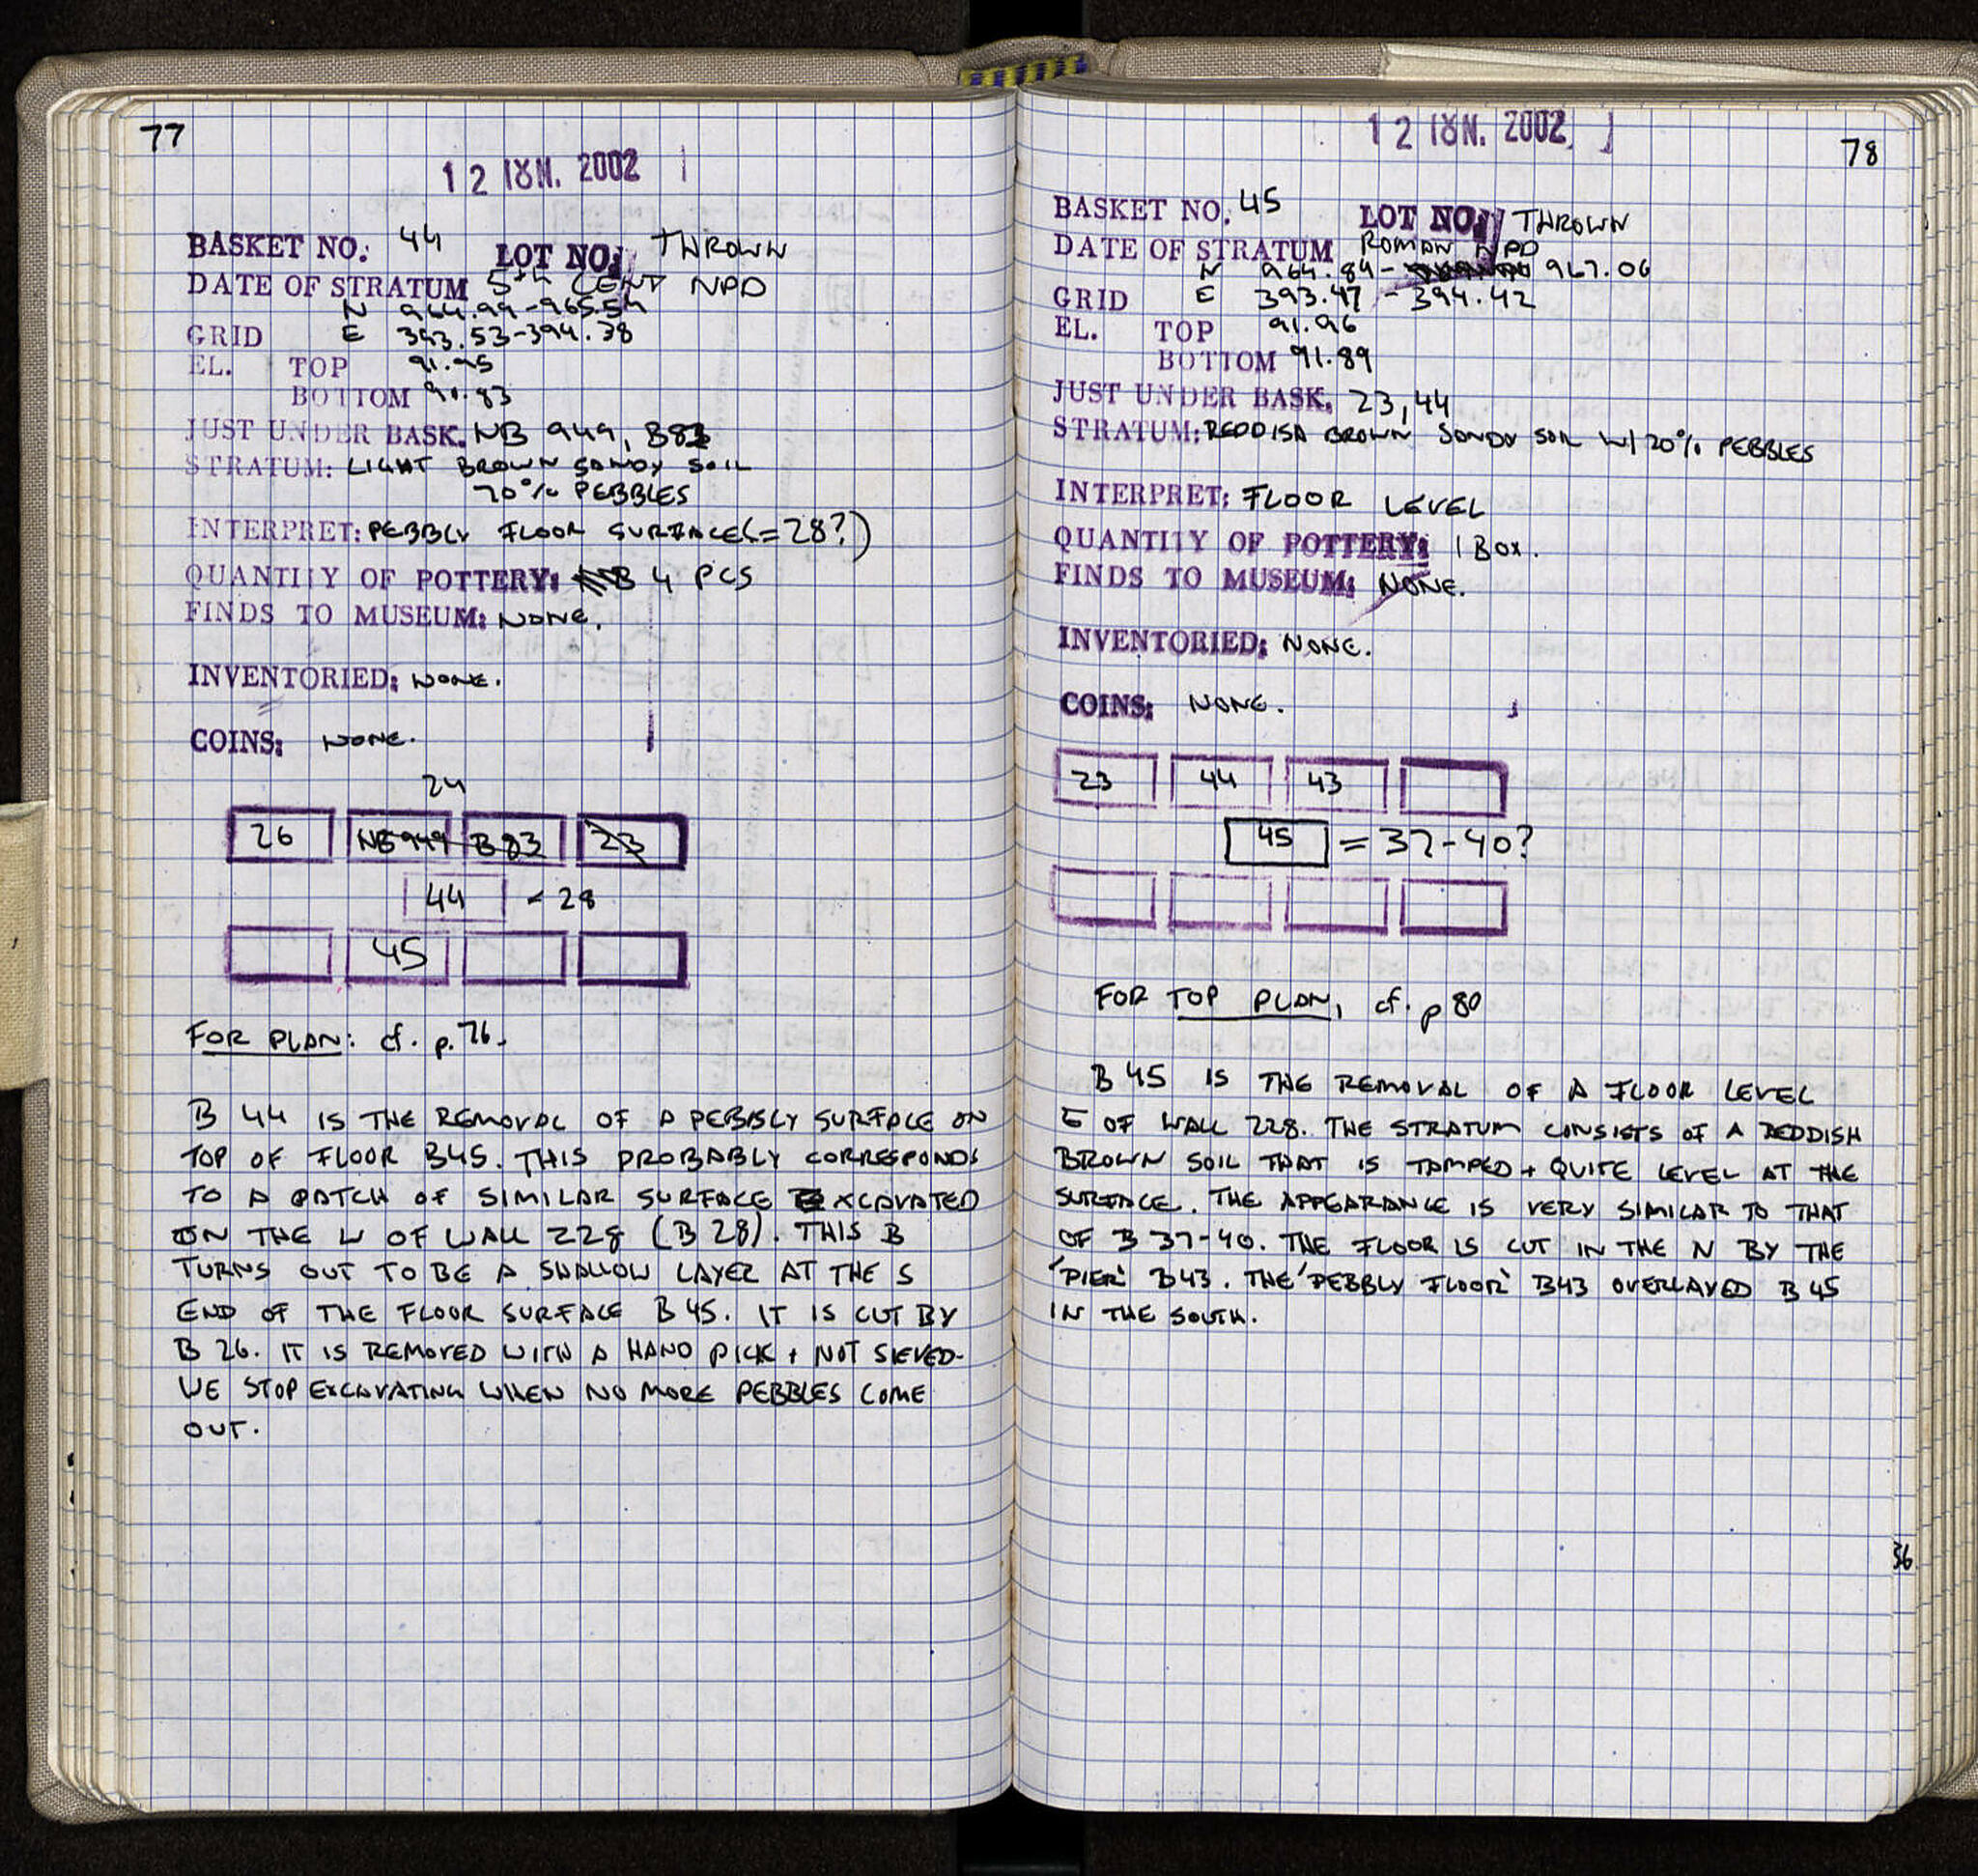 77
12 ΙΟΥΝ. 2002
BASKET NO: 44 LOT NO: THROWN
DATE OF STRATUM 5th CENT NPD
N 964.99-965.54
GRID E 393.53-394.38
EL. TOP 91.95
BOTTOM 91.83
JUST UNDER BASK. NB 949, B83
STRATUM: LIGHT BROWN SANDY SOIL
70% PEBBLES
INTERPRET: PEBBLY FLOOR SURFACE (=28?)
QUANTITY OF POTTERY: 4 PCS
FINDS TO MUSEUM: NONE.
INVENTORIED: NONE.
COINS: NONE.
24
26 NB 949 B 83 23
44 = 28
45
FOR PLAN: cf. p. 76.
B 44 IS THE REMOVAL OF A PEBBLY SURFACE ON
TOP OF FLOOR B45. THIS PROBABLY CORRESPONDS
TO A PATCH OF SIMILAR SURFACE EXCAVATED
ON THE W OF WALL 228 (B 28). THIS B
TURNS OUT TO BE A SHALLOW LAYER AT THE S
END OF THE FLOOR SURFACE B 45. IT IS CUT BY
B 26. IT IS REMOVED WITH A HAND PICK + NOT SIEVED.
WE STOP EXCAVATING WHEN NO MORE PEBBLES COME
OUT.
12 ΙΟΥΝ. 2002
78
BASKET NO. 45 LOT NO: THROWN
DATE OF STRATUM ROMAN NPD
N 964.84- 967.06
GRID E 393.47 - 394.42
EL. TOP 91.96
BOTTOM 91.89
JUST UNDER BASK. 23, 44
STRATUM: REDDISH BROWN SANDY SOIL W/ 20% PEBBLES
INTERPRET: FLOOR LEVEL
QUANTITY OF POTTERY: 1 BOX.
FINDS TO MUSEUM: NONE.
INVENTORIED: NONE.
COINS: NONE.
23 44 43
45 = 37-40?
FOR TOP PLAN, cf. p 80
B 45 IS THE REMOVAL OF A FLOOR LEVEL
E OF WALL 228. THE STRATUM CONSISTS OF A REDDISH
BROWN SOIL THAT IS TAMPED + QUITE LEVEL AT THE
SURFACE. THE APPEARANCE IS VERY SIMILAR TO THAT
OF B 37-40. THE FLOOR IS CUT IN THE N BY THE
'PIER' B43. THE 'PEBBLY FLOOR' B43 OVERLAYED B 45
IN THE SOUTH.
36